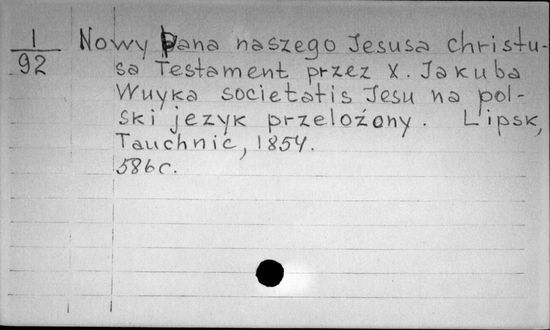 1
92
Nowy Pana naszego Jesusa Christu-
sa Testament przez X. Jakuba
Wuyka societatis Jesu na pol-
ski jezyk przelożony. Lipsk,
Tauchnic, 1854.
586c.